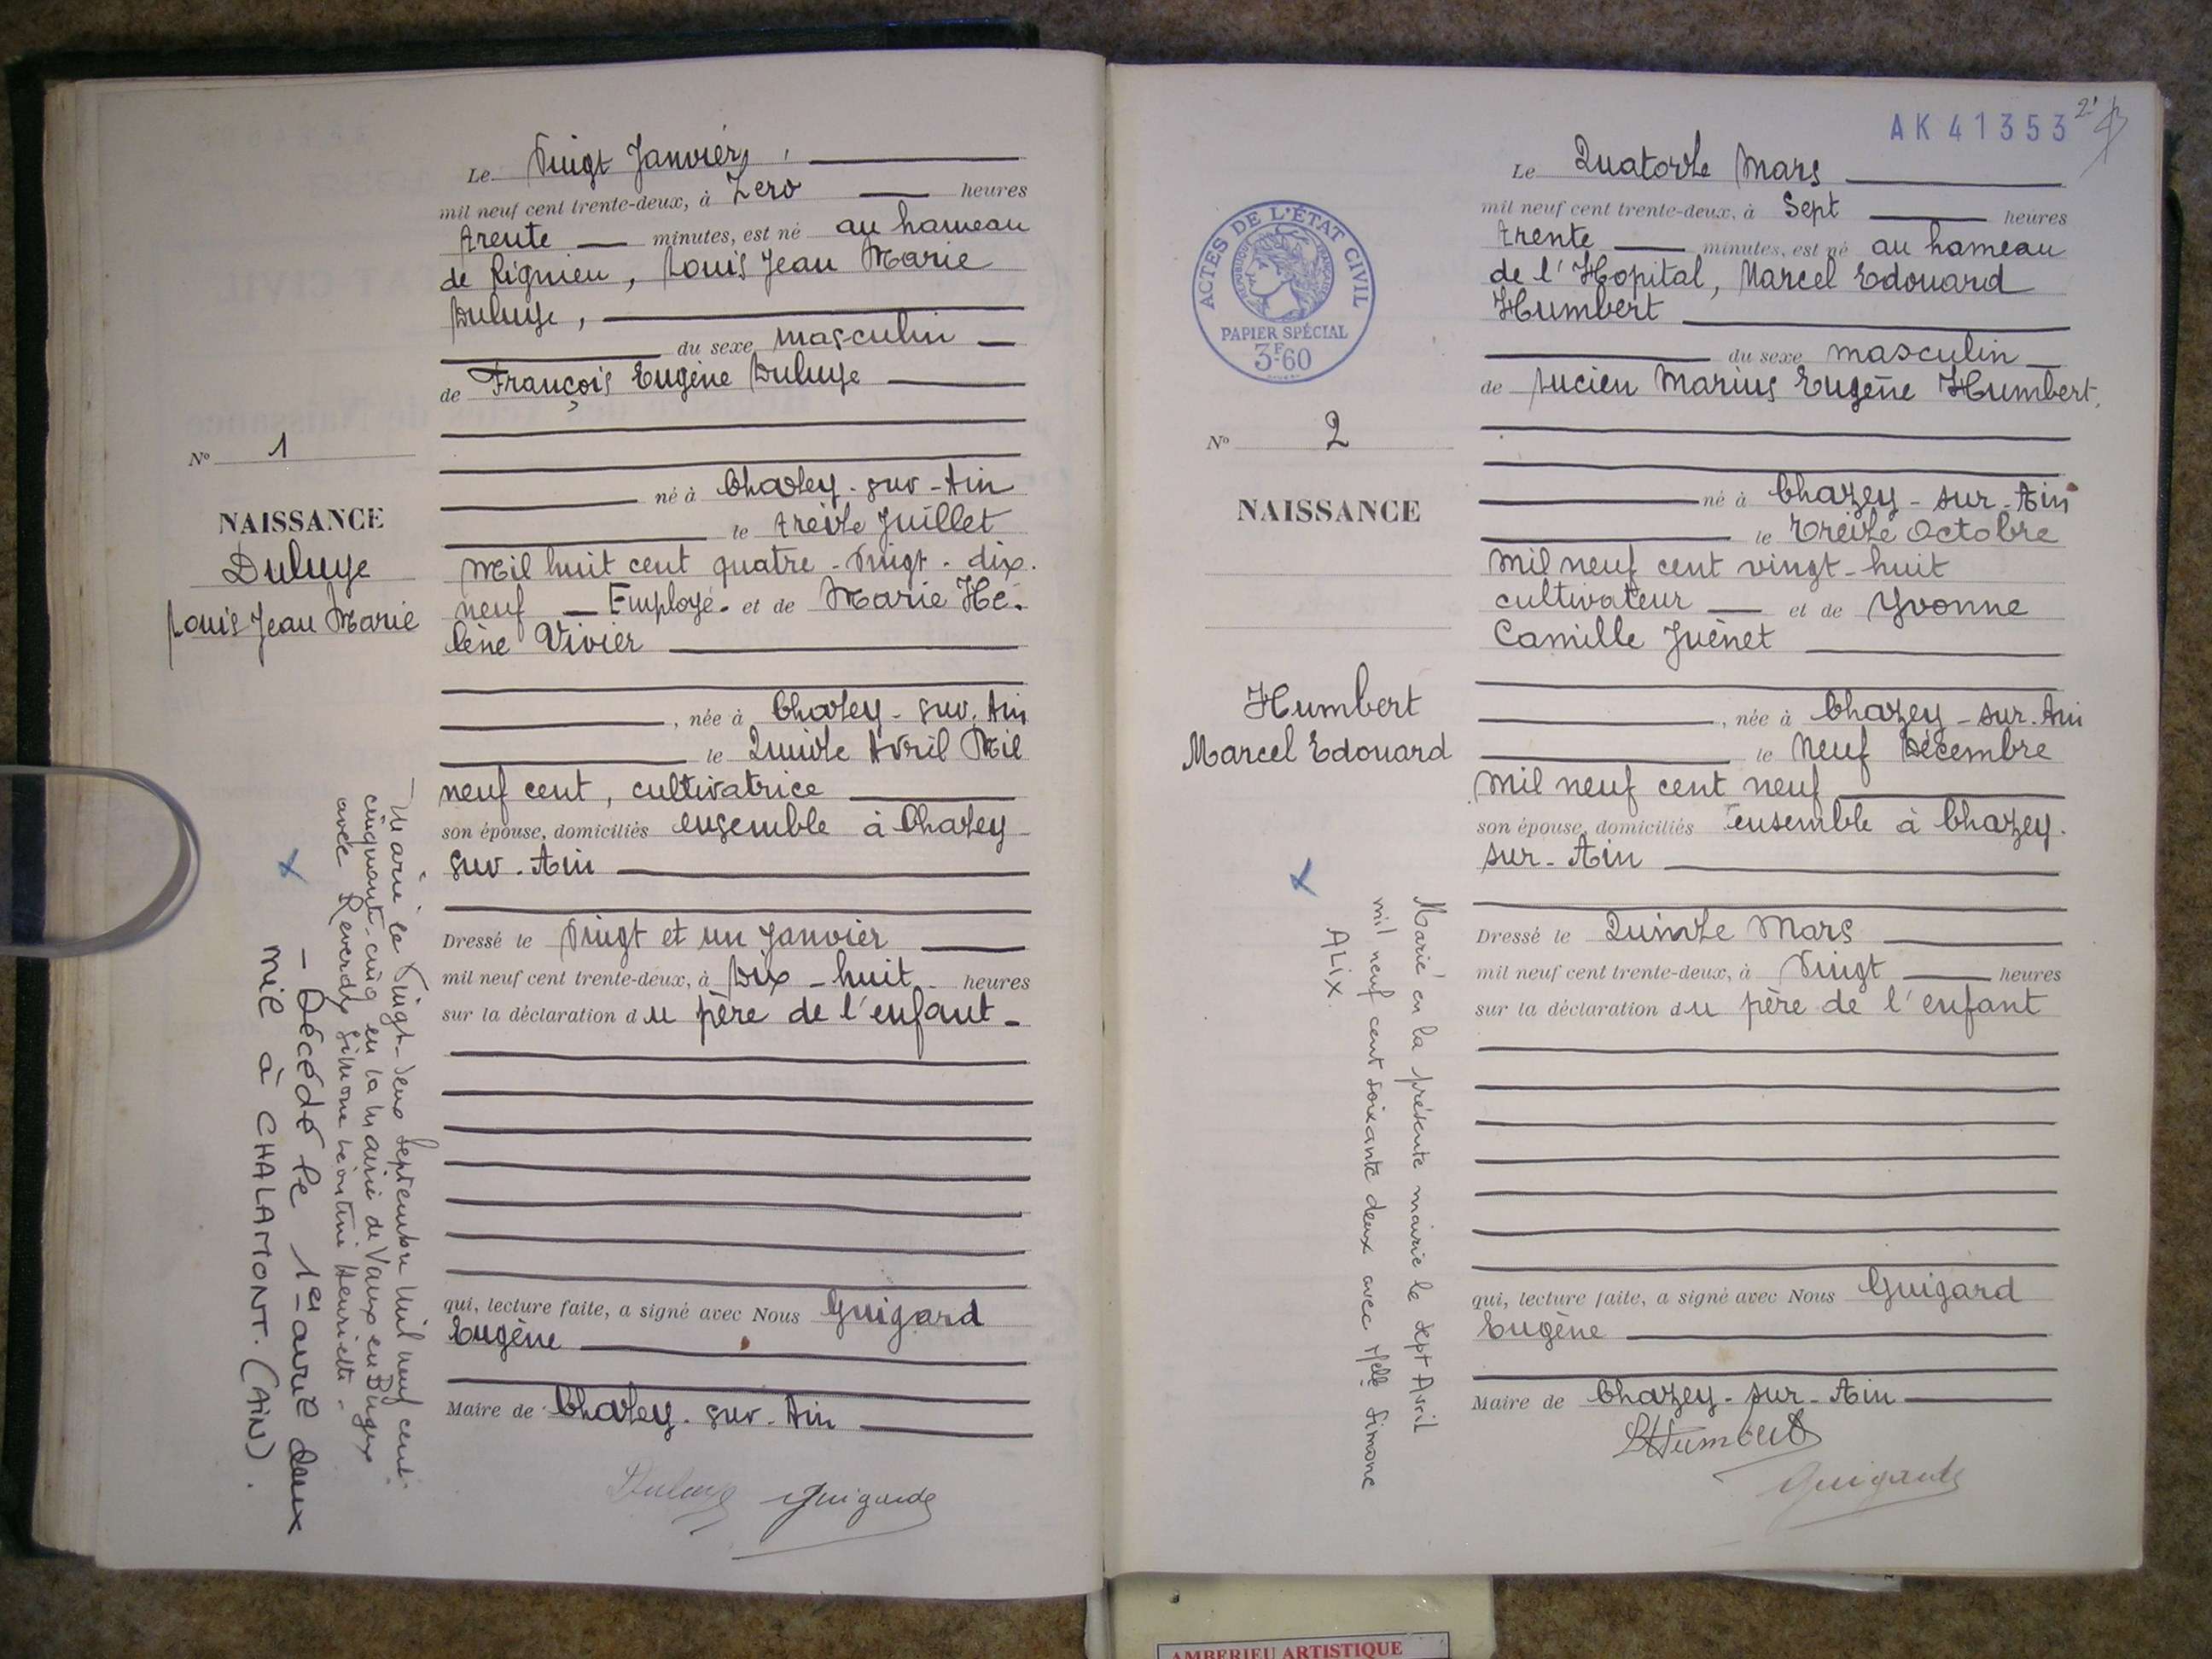 Le Vingt Janvier,
mil neuf cent trente-deux, à Zero heures
trente minutes, est né au hameau
de Rignieu, Louis Jean Marie
Duluye,
du sexe masculin
de François Eugène Duluye
né à Chazey-sur-Ain
le treize Juillet
mil huit cent quatre-vingt-dix.
neuf Employé. et de Marie Hé-
lène Vivier
, née à Chazey-sur-Ain
le Quinze Avril Mil
neuf cent, cultivatrice
son épouse, domiciliés ensemble à Chazey
sur-Ain
Dressé le Vingt et un Janvier
mil neuf cent trente-deux, à Dix-huit heures
sur la déclaration du père de l'enfant
qui, lecture faite, a signé avec Nous Guigard
Eugène
Maire de Chazey-sur-Ain
Guigard
N° 1
NAISSANCE
Duluye
Louis Jean Marie
- Marié le vingt-deux Septembre mil neuf cent
cinquante-cinq en la mairie de Vaux en Bugey
avec Reverdy Simone Léontine Henriette -
- Décédé le 1er avril deux
mil à CHALAMONT. (AIN).
AK 41353
2
ACTES DE L'ÉTAT CIVIL
RÉPUBLIQUE FRANÇAISE
PAPIER SPÉCIAL
3F.60
N° 2
NAISSANCE
Humbert
Marcel Edouard
Marié en la présente mairie le sept Avril
mil neuf cent soixante deux avec Melle Simone
ALIX.
Le Quatorze Mars
mil neuf cent trente-deux, à Sept heures
trente minutes, est né au hameau
de l'Hopital, Marcel Edouard
Humbert
du sexe masculin
de Lucien Marius Eugène Humbert,
né à Chazey-sur-Ain
le treize Octobre
mil neuf cent vingt-huit
cultivateur et de Yvonne
Camille Juénet
, née à Chazey-sur-Ain
le Neuf Décembre
mil neuf cent neuf
son épouse, domiciliés ensemble à Chazey-
sur-Ain
Dressé le Quinze Mars
mil neuf cent trente-deux, à Vingt heures
sur la déclaration du père de l'enfant
qui, lecture faite, a signé avec Nous Guigard
Eugène
Maire de Chazey-sur-Ain
LHumbert
Guigard
AMBERIEU ARTISTIQUE